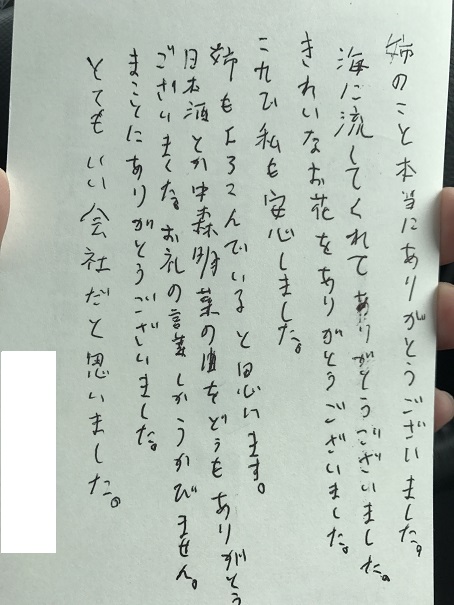 姉のこと本当にありがとうございました。
海に流してくれてありがとうございました。
きれいなお花をありがとうございました。
これで私も安心しました。
姉もよろこんでいると思います。
日本酒とか中森明菜の曲をどうもありがとう
ございました。お礼の言葉しかうかびません。
まことにありがとうございました。
とてもいい会社だと思いました。